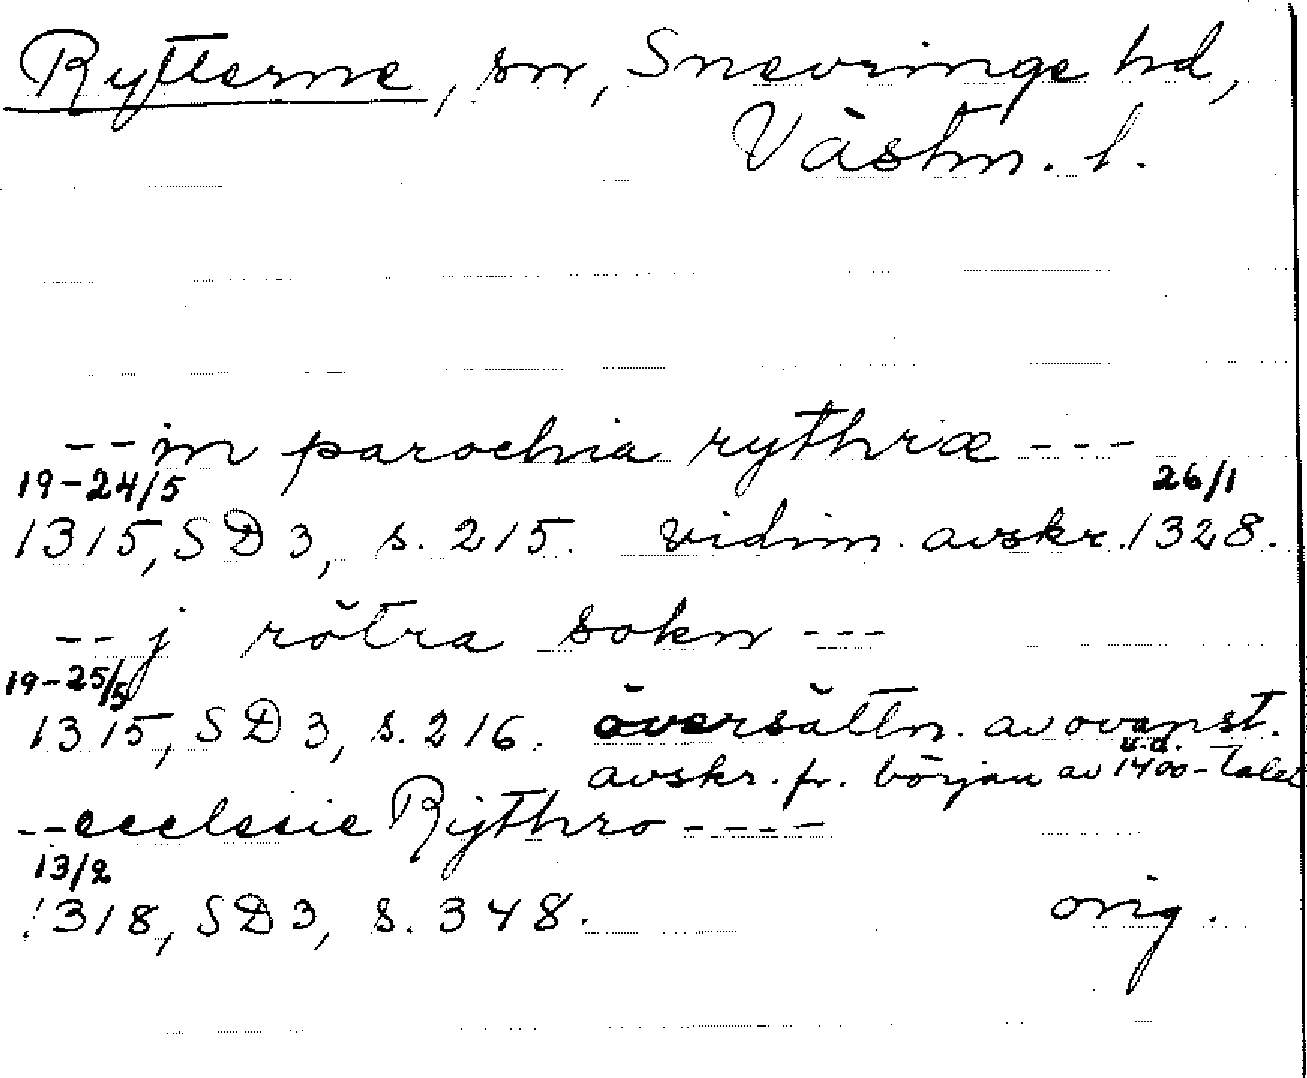 Rytterne, sn, Snevringe hd,
Västm. l.
-- in parochia rythræ ---
19-24/5 26/1
1315, SD 3, s. 215. vidim. avskr. 1328.
-- j rötra sokn ---
19-25/5
1315, SD 3, s. 216. översättn. av ovanst.
u.d.
avskr. fr. början av 1400-talet
-- ecclesie Rythro ----
13/2
1318, SD 3, s. 348. orig.